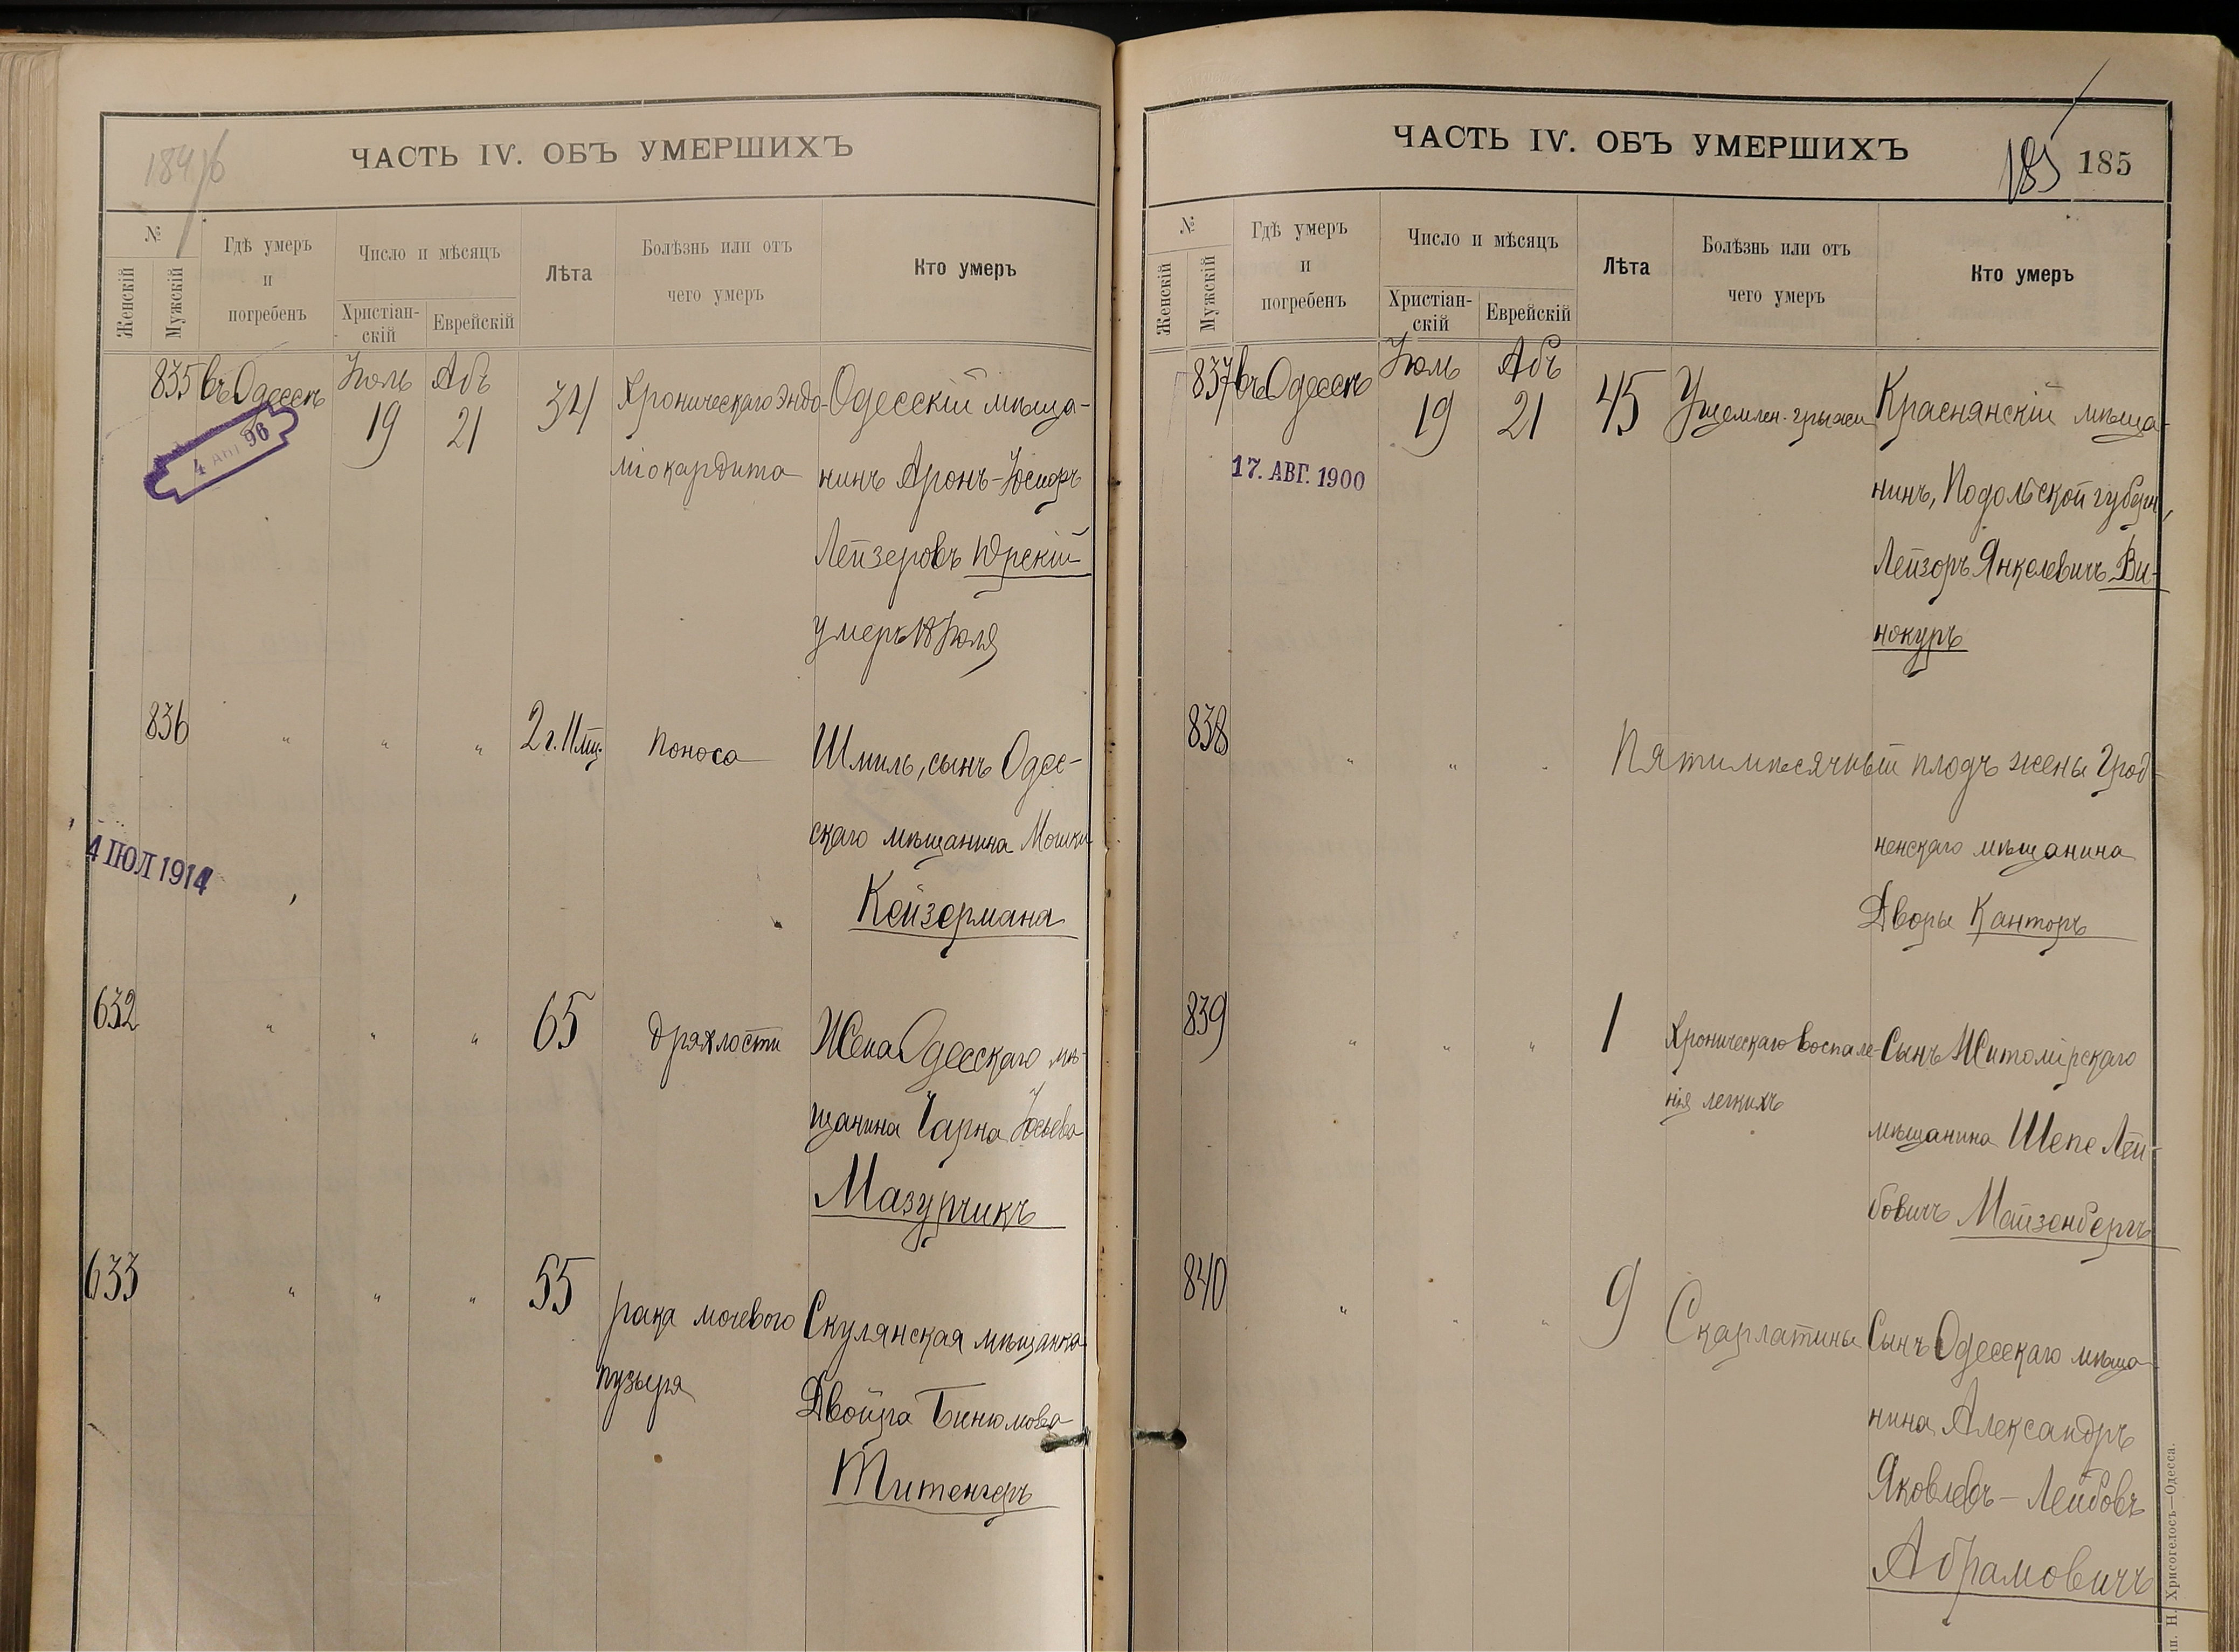 1896
ЧАСТЬ IV. ОБЪ УМЕРШИХЪ
№
Женскій
Мужскій
Гдѣ умеръ
и
погребенъ
Число и мѣсяцъ
Христіан-
скій
Еврейскій
Лѣта
Болѣзнь или отъ
чего умеръ
Кто умеръ
835 въ Одессѣ Іюль 19 Абъ 21 34 Хроническаго эндо- Одесскій мѣща-
міокардита нинъ Аронъ-Іосифъ
Лейзеровъ Юрскій
умеръ 18 Іюля
4 АВГ 96
836 " " " 2 г. 11 мц. Поноса Шмиль, сынъ Одес-
скаго мѣщанина Мошки
Кейзермана
4 ІЮЛ 1914
632 " " " 65 дряхлости Жена Одесскаго мѣ-
щанина Чарна Іосьева
Мазурчикъ
633 " " " 55 рака мочеваго Скулянская мѣщанка
пузыря Двойра Бинюмова
Титенгеръ
ЧАСТЬ IV. ОБЪ УМЕРШИХЪ
185 185
№
Женскій
Мужскій
Гдѣ умеръ
и
погребенъ
Число и мѣсяцъ
Христіан-
скій
Еврейскій
Лѣта
Болѣзнь или отъ
чего умеръ
Кто умеръ
837 въ Одессѣ Іюль 19 Абъ 21 45 Ущемлен. грыжи Краснянскій мѣща-
17. АВГ. 1900
нинъ, Подольской губерн,
Лейзоръ Янкелевичъ Ви-
нокуръ
838 " " " Пятимѣсячный плодъ жены Грод-
ненскаго мѣщанина
Дворы Канторъ
839 " " " 1 Хроническаго воспале- Сынъ Житомірскаго
нія легкихъ
мѣщанина Шепе Лей-
бовичъ Майзенбергъ
840 " " " 9 Скарлатины Сынъ Одесскаго мѣща-
нина Александръ
Яковлевъ-Лейбовъ
Абрамовичъ
ип. Н. Хрисогелосъ—Одесса.